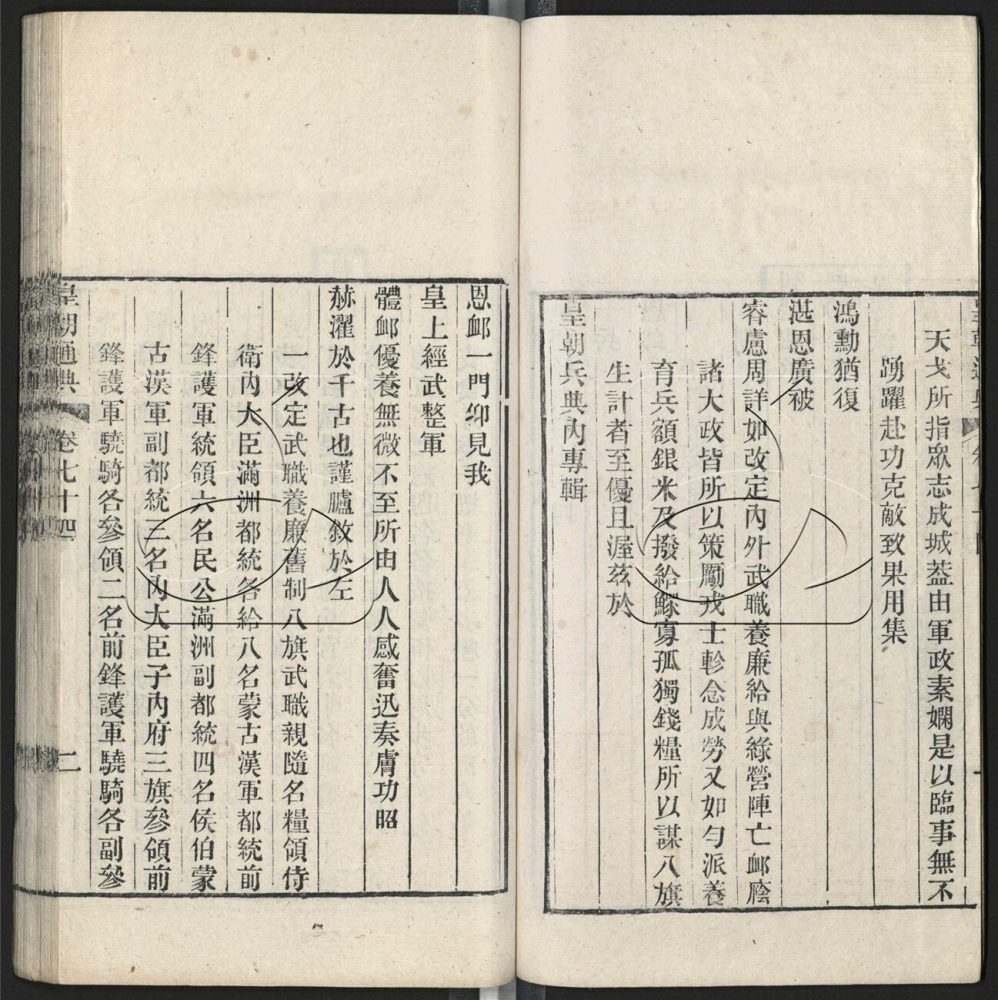 天戈所指眾志成城葢由軍政素嫻是以臨事無不
踴躍赴功克敵致果用集
鴻勳猶復
湛恩廣被
睿慮周詳如改定內外武職養廉給與綠營陣亡卹廕
諸大政皆所以策勵戎士軫念成勞又如勻派養
育兵額銀米及撥給鰥寡孤獨錢糧所以謀八旗
生計者至優且渥茲於
皇朝兵典內專輯
恩卹一門仰見我
皇上經武整軍
體卹優養無微不至所由人人感奮迅奏膚功昭
赫濯於千古也謹臚敘於左
一改定武職養廉舊制八旗武職親隨名糧領侍
衛內大臣滿洲都統各給八名蒙古漢軍都統前
鋒護軍統領六名民公滿洲副都統四名侯伯蒙
古漢軍副都統三名內大臣子內府三旗參領前
鋒護軍驍騎各參領二名前鋒護軍驍騎各副參
皇朝通典
卷七十四
二